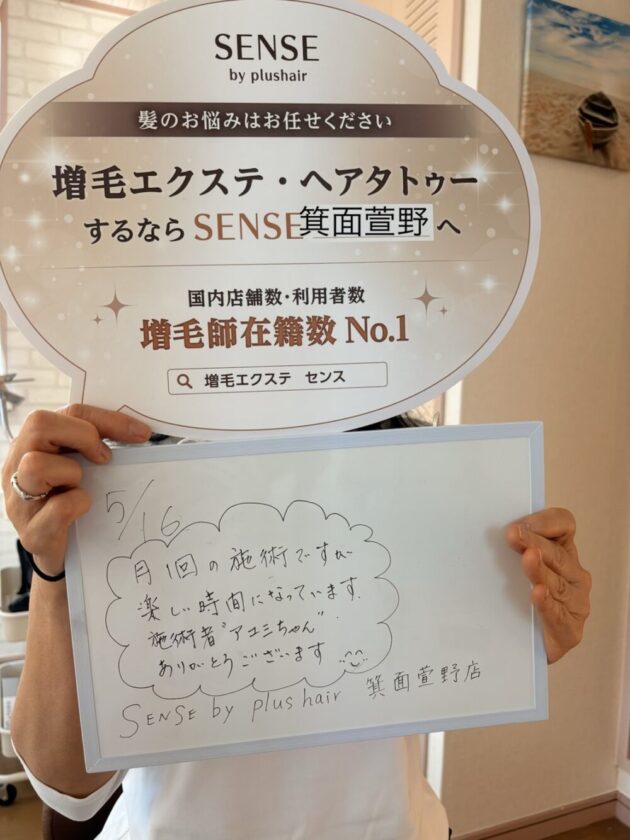 SENSE
by plushair
髪のお悩みはお任せください
増毛エクステ・ヘアタトゥー
するなら SENSE箕面萱野へ
国内店舗数・利用者数
増毛師在籍数 No.1
増毛エクステ センス
5/16
月1回の施術ですが
楽しい時間になっています.
施術者"アユミちゃん".
ありがとうございます
SENSE by plushair 箕面萱野店